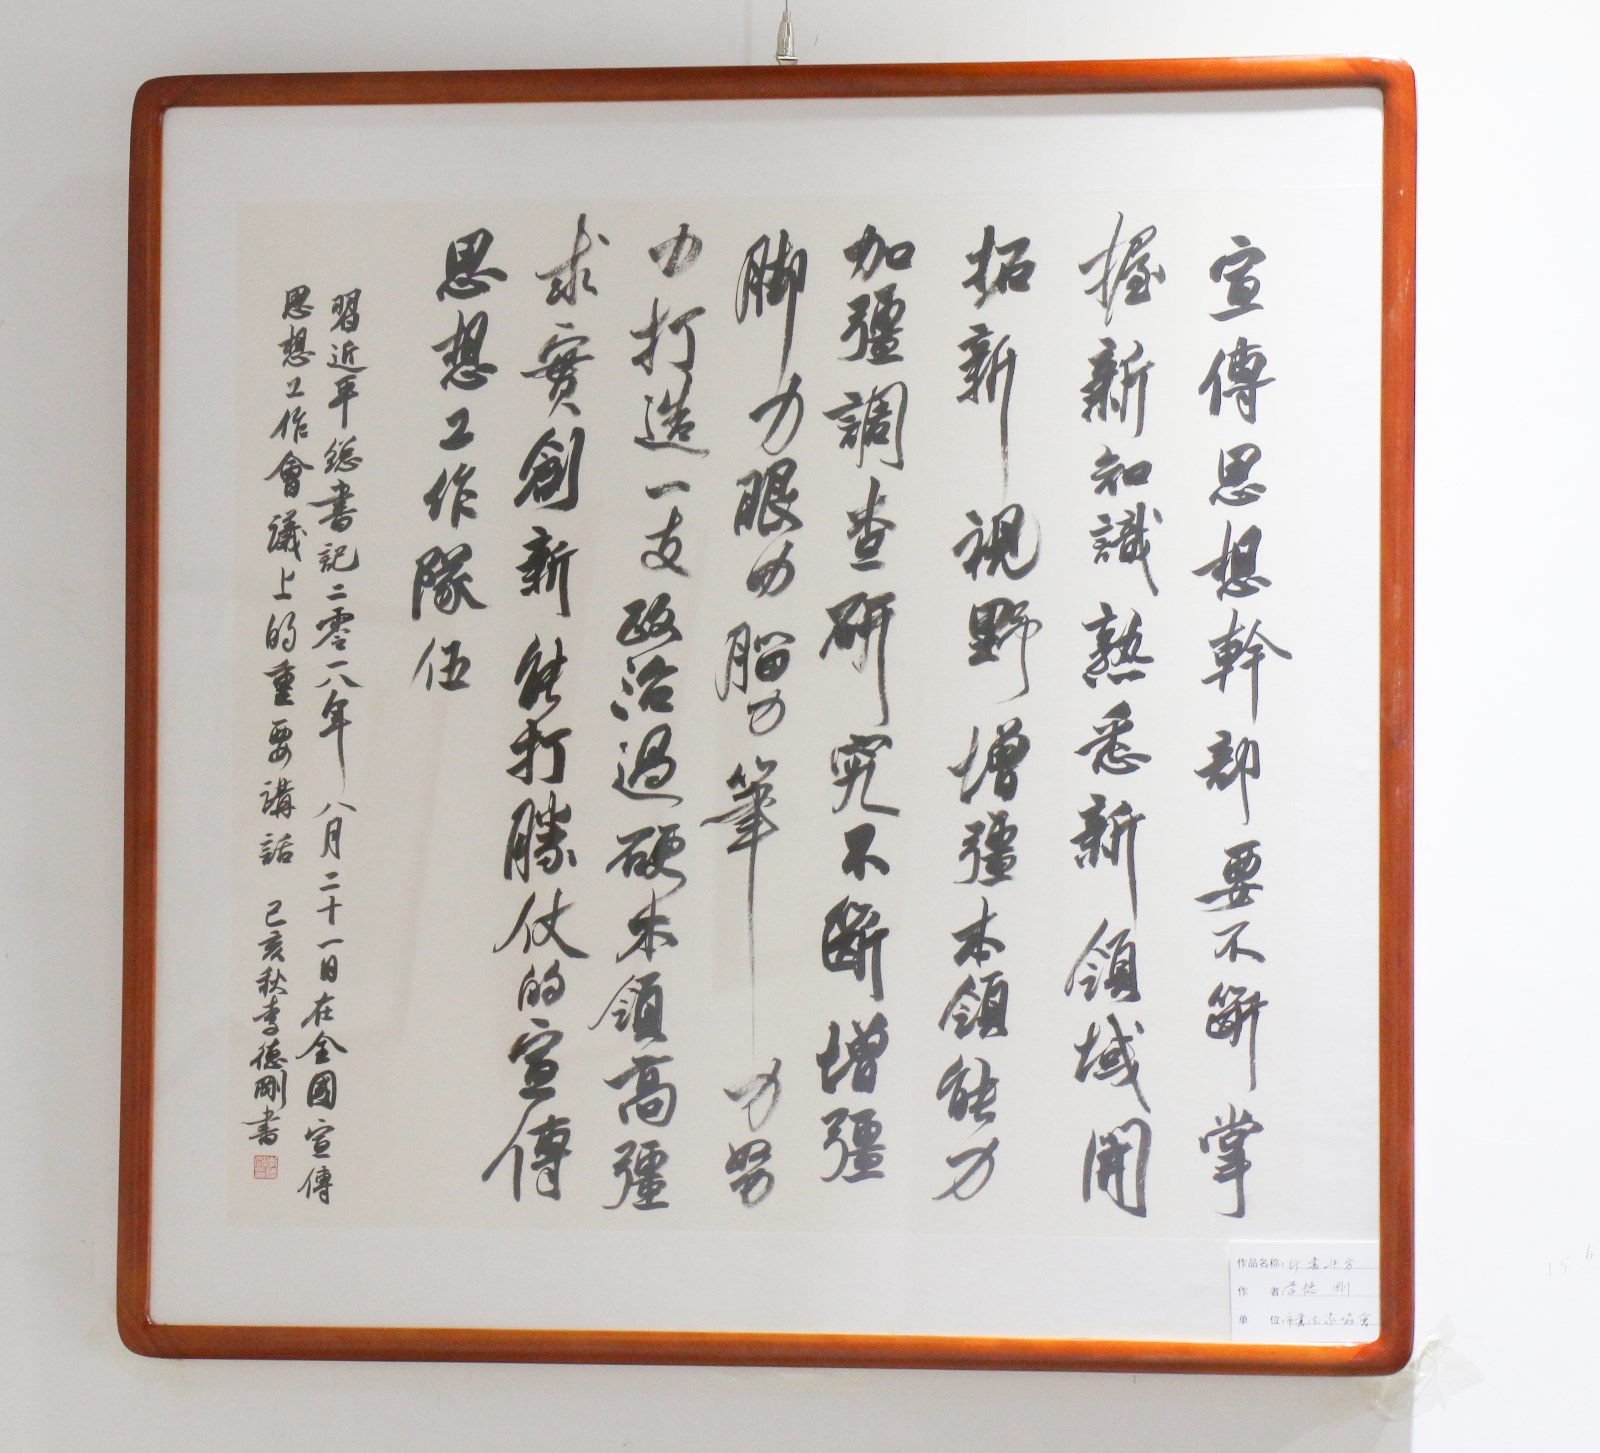 宣傳思想幹部要不斷掌
握新知識熟悉新領域開
拓新視野增彊本領能力
加彊調查研究不斷增彊
脚力眼力腦力筆力努
力打造一支政治過硬本領高彊
求實創新能打勝仗的宣傳
思想工作隊伍
習近平總書記二零一八年八月二十一日在全國宣傳
思想工作會議上的重要講話 己亥秋李德剛書
作品名称：行書斗方
作者：李德剛
单位：市書法家協會